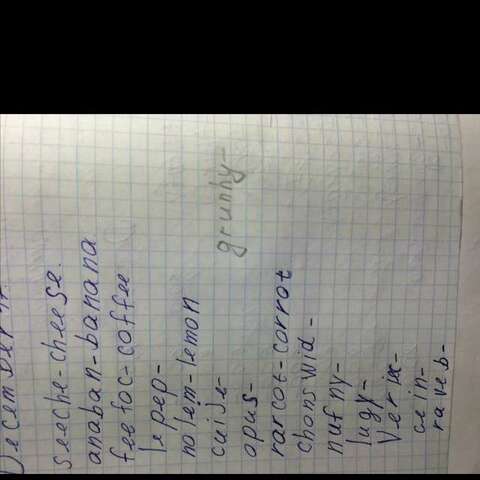 December
seeche-cheese.
anaban-banana
feefoc-coffee
lepep-
nolem-lemon
cuije-
opus-
grunhy-
rarcot-carrot
chonswid-
nufny-
lugy-
Verix-
cein-
raveb-